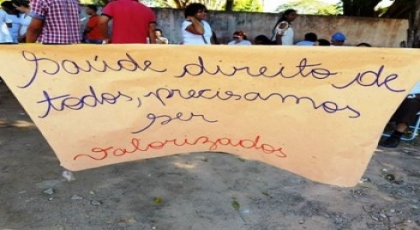 Saúde direito de
todos, precisamos
ser
valorizados